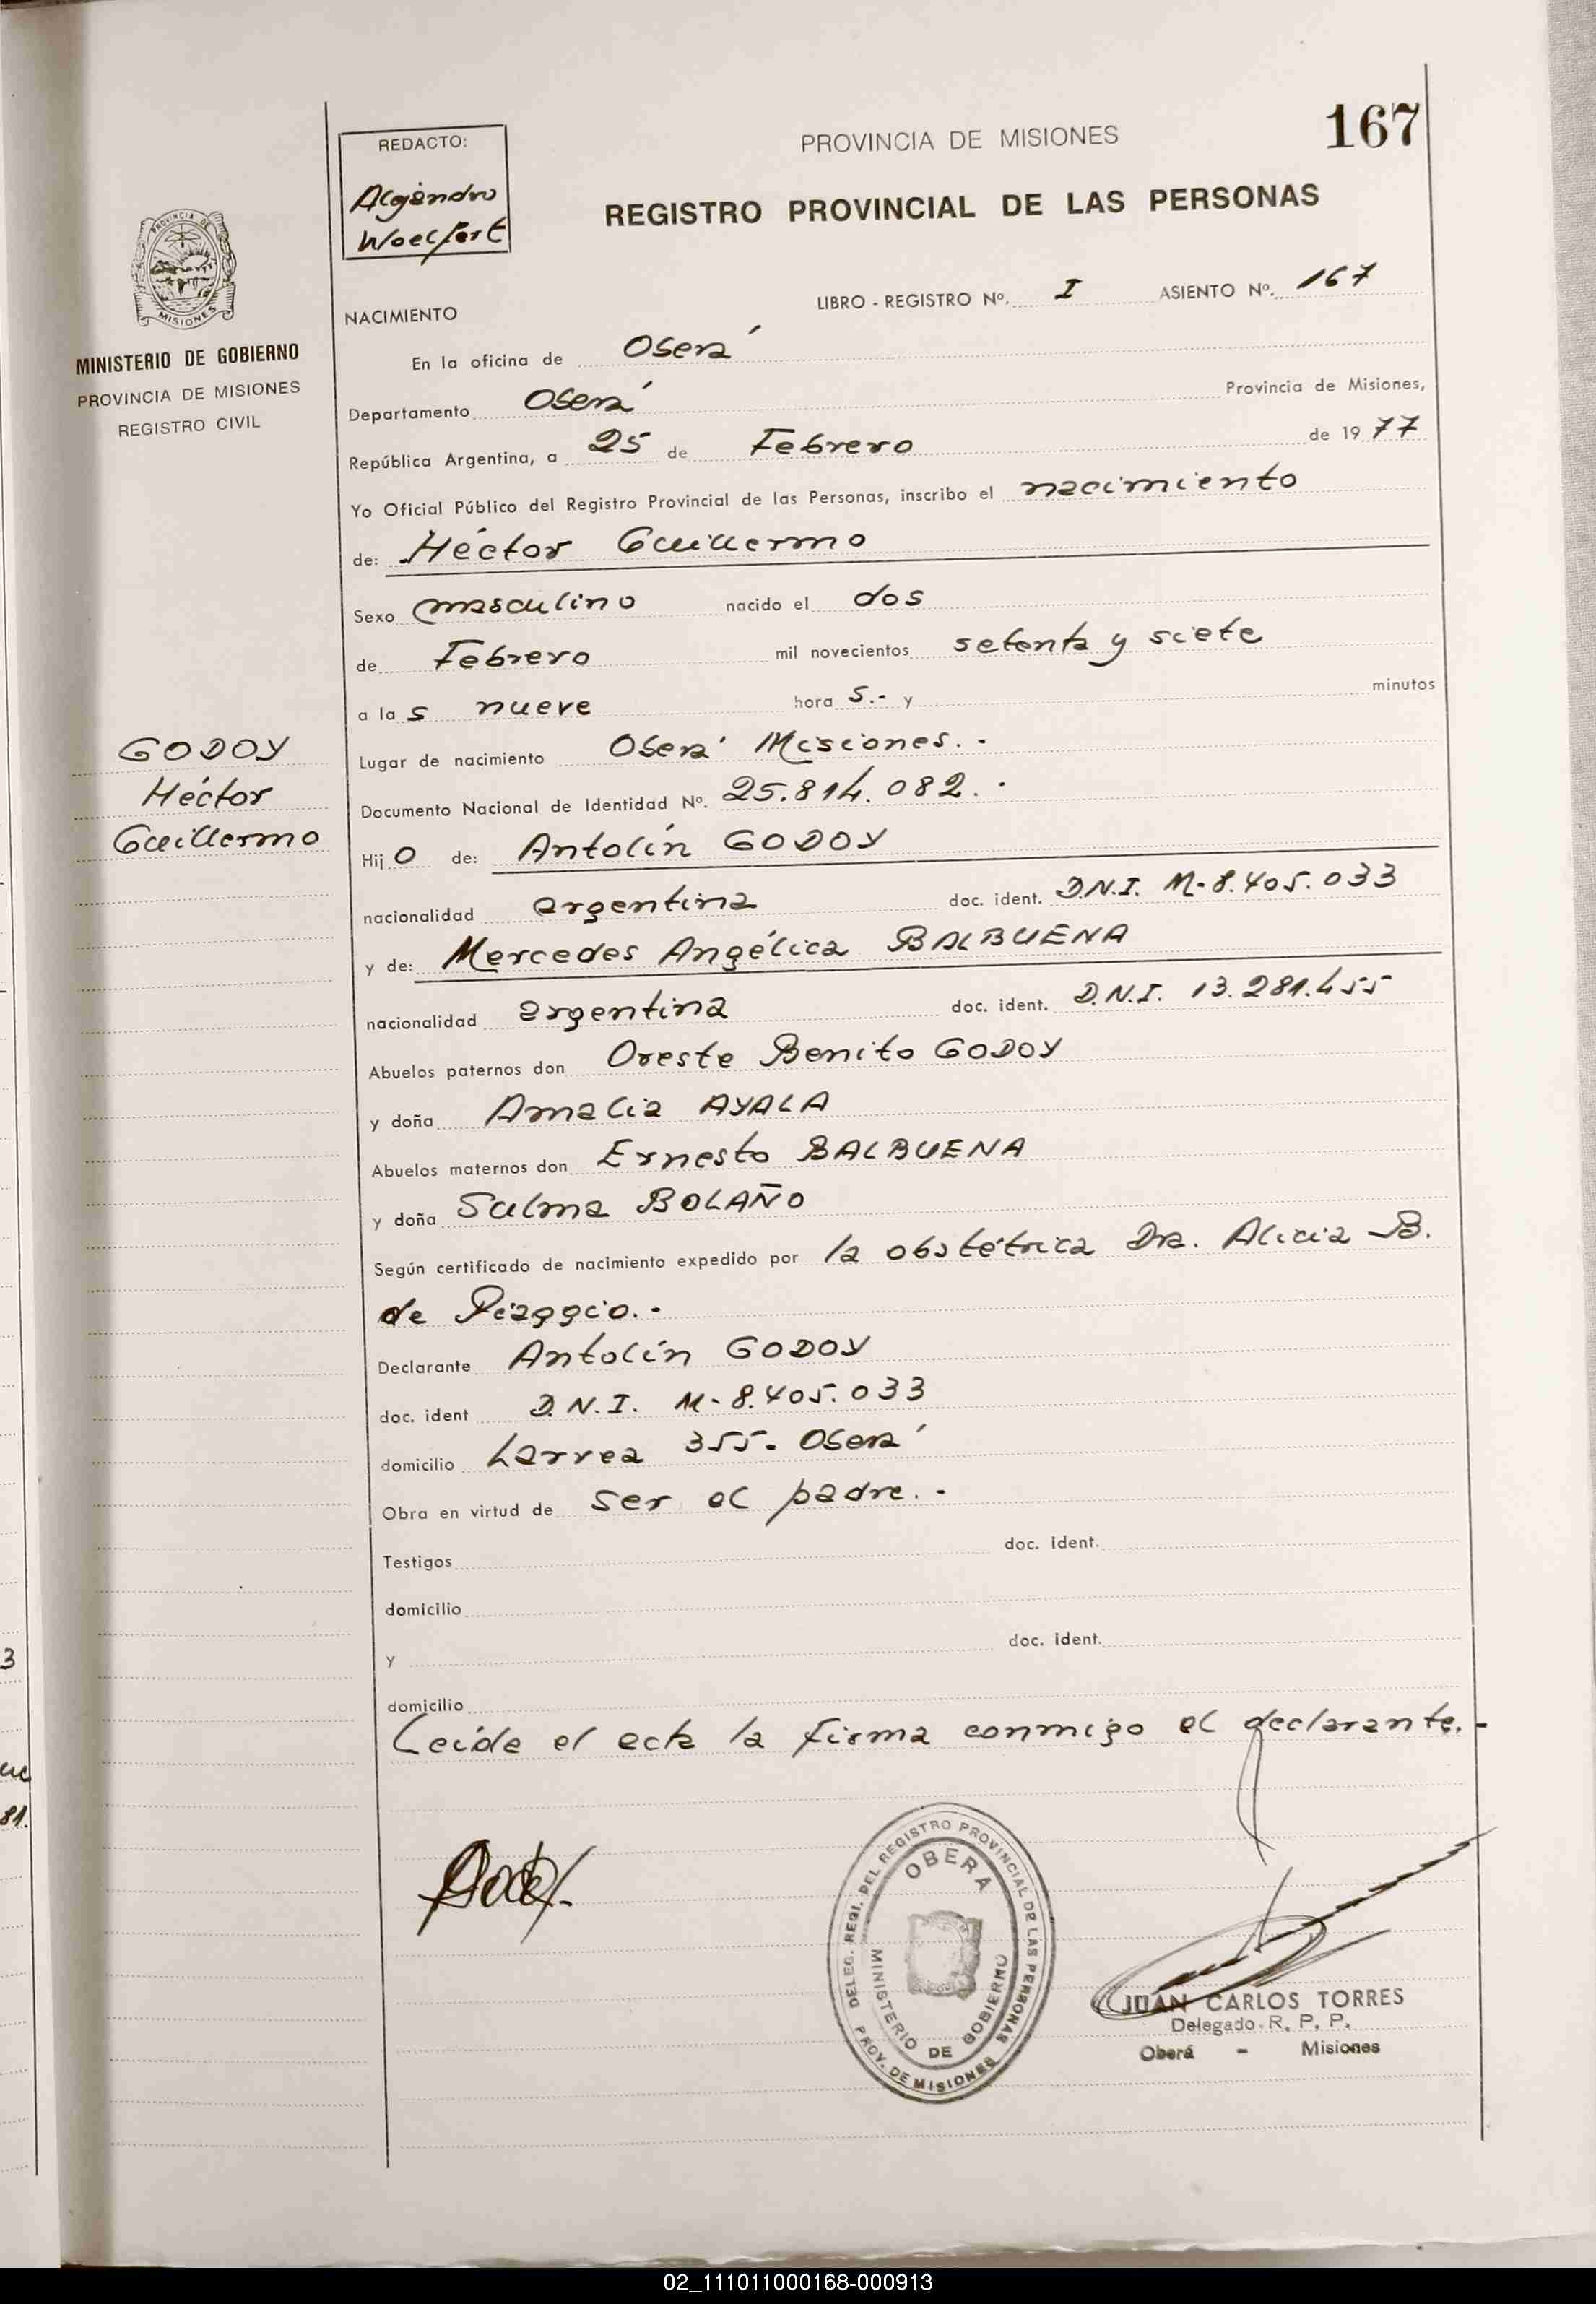 167
REDACTO:
Alejandro
Woelfert
PROVINCIA DE MISIONES
REGISTRO PROVINCIAL DE LAS PERSONAS
PROVINCIA DE
MISIONES
MINISTERIO DE GOBIERNO
PROVINCIA DE MISIONES
REGISTRO CIVIL
NACIMIENTO
LIBRO - REGISTRO Nº. I ASIENTO Nº. 167
En la oficina de Oberá
Departamento Oberá Provincia de Misiones,
República Argentina, a 25 de Febrero de 1977
Yo Oficial Público del Registro Provincial de las Personas, inscribo el nacimiento
de: Héctor Guillermo
Sexo masculino nacido el dos
de Febrero mil novecientos setenta y siete
a las nueve hora s.- y minutos
Lugar de nacimiento Oberá Misiones.-
GODOY
Héctor
Guillermo
Documento Nacional de Identidad Nº. 25.814.082.-
Hijo de: Antolín GODOY
nacionalidad argentina doc. ident. D.N.I. M-8.405.033
y de: Mercedes Angélica BALBUENA
nacionalidad argentina doc. ident. D.N.I. 13.281.455
Abuelos paternos don Oreste Benito GODOY
y doña Amalia AYALA
Abuelos maternos don Ernesto BALBUENA
y doña Sulma BOLAÑO
Según certificado de nacimiento expedido por la obstétrica Dra. Alicia B.
de Piaggio.-
Declarante Antolín GODOY
doc. ident D.N.I. M-8.405.033
domicilio Larrea 355. Oberá
Obra en virtud de ser el padre.-
Testigos doc. ident.
domicilio
y doc. ident.
domicilio
Leída el acta la firma conmigo el declarante.-
DELEG. REGI. DEL REGISTRO PROVINCIAL DE LAS PERSONAS
OBERA
MINISTERIO DE GOBIERNO
PROV. DE MISIONES
JUAN CARLOS TORRES
Delegado R. P. P.
Oberá - Misiones
3
81.
02_111011000168-000913